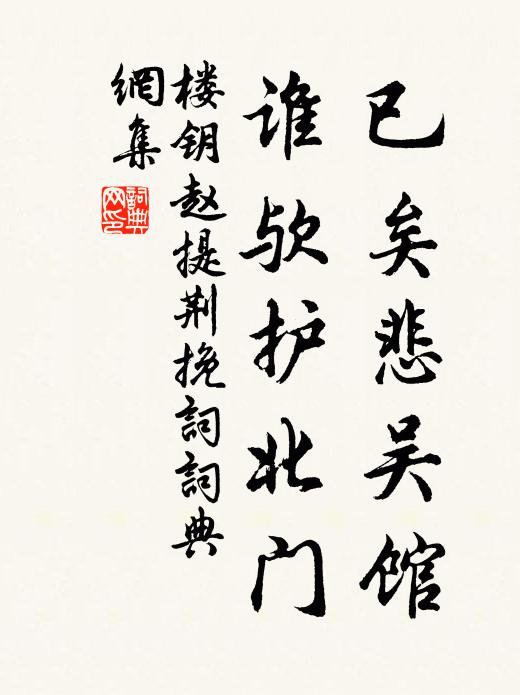 已矣悲吴馆
谁欤护北门
楼钥赵提荆挽詞詞典
網集
詞典网印